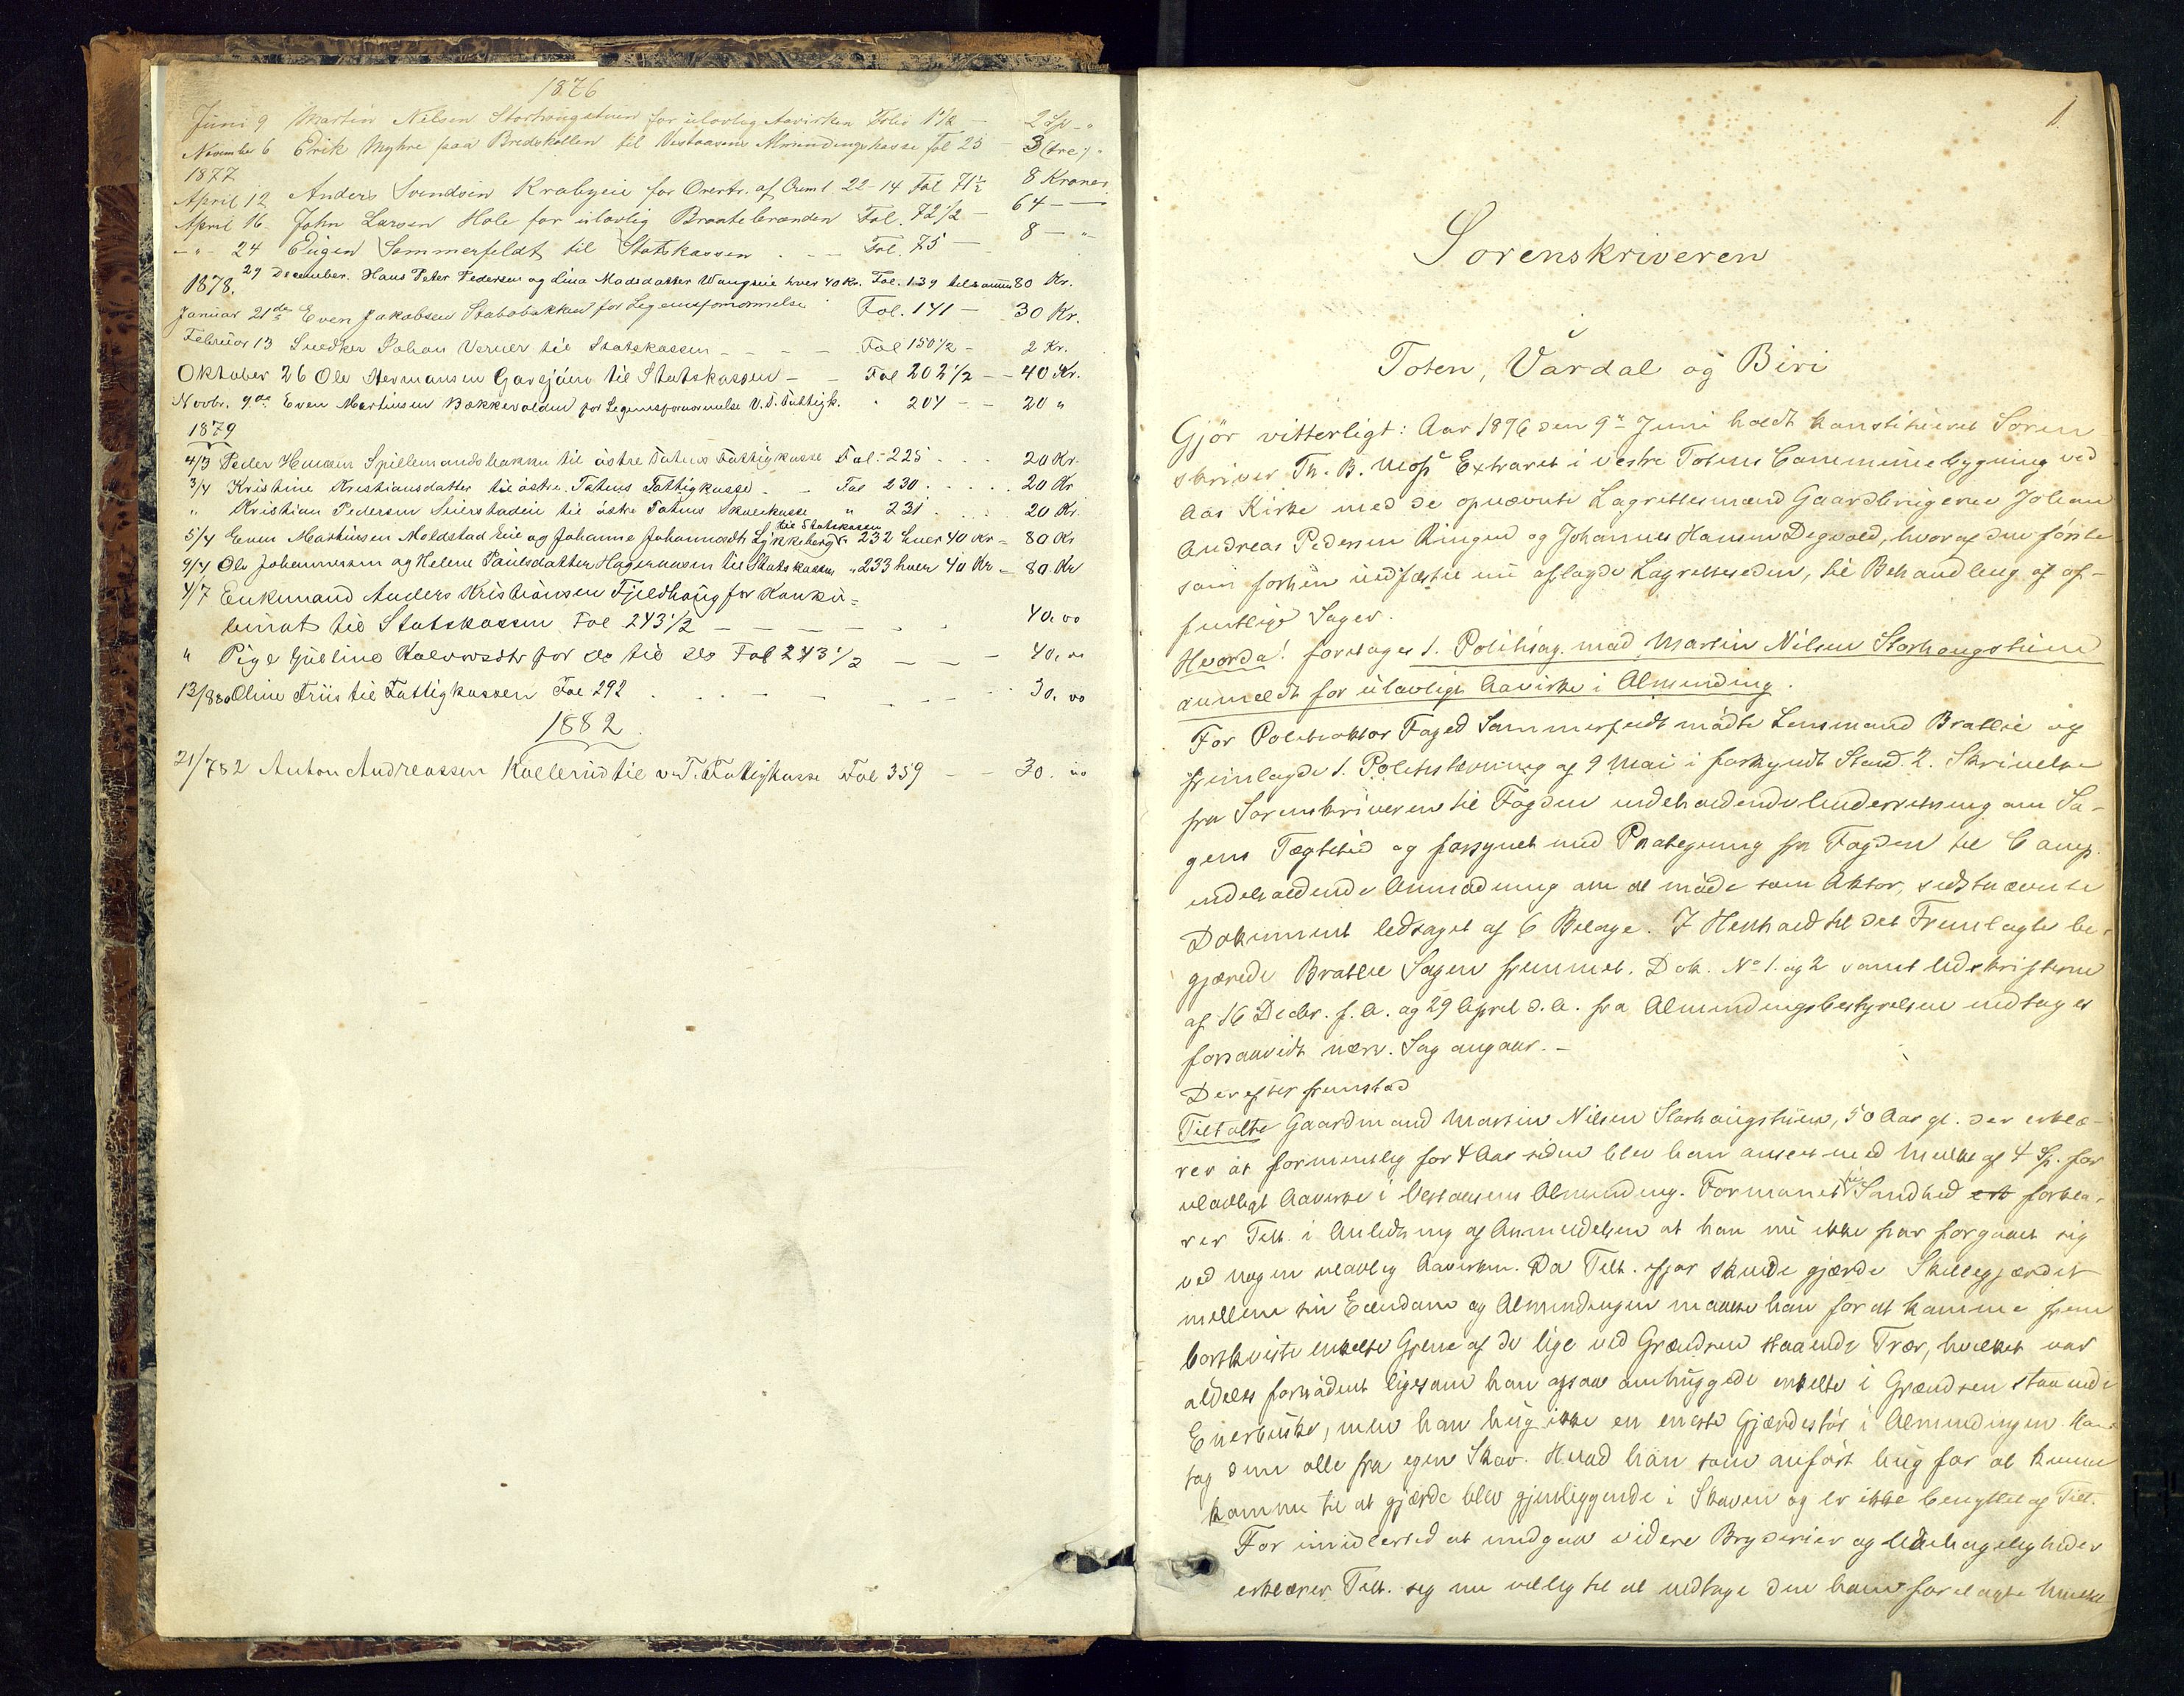 1876
Juni 9 Martin Nilsen Storhaugstuen for ulovlig Aavirken Folio 1 1/2 — 2 Sp - "
November 6 Erik Myhre paa Bredskallen til Vestaasens Almindingskasse Fol 25 — 3 (tre) "
1877
April 12 Anders Svendsen Krabyeie for Overtr. af Criml 22-14 Fol 71 1/2 8 Kroner
April 16 John Larsen Hole for ulovlig Braatebrænden Fol. 72 1/2 — 64 — —
— " — 24 Eugen Sommerfeldt til Statskassen . — — Fol. 75 — 8 — "
29 December. Hans Peter Pedersen og Lina Madsdatter Wangseie hver 40 Kr. Fol. 139 tilsamm 80 Kr.
1878.
Januar 21de Even Jakobsen Stabobakken for Legemsfornærmelse Fol. 141 — 30 Kr.
Februar 13 Snedker Johan Verner til Statskassen — — — — Fol 150 1/2 — 2 Kr.
Oktober 26 Ole Hermansen Garsjøen til Statskassen — — Fol 202 1/2 — — 40 Kr.
Novbr. 9de Even Martinsen Bækkevolden for Legemsfornærmelse V. T. Fattigk. " 204 — — 20 "
1879
4/3 Peder Hansen Spillemandsbakken til østre Totens Fattigkasse Fol. 225 . . . 20 Kr.
3/4 Kristine Kristiansdatter til østre Totens Fattigkasse — — Fol 230 . . . . 20 Kr
" Kristian Pedersen Seierstadeie til østre Totens Skolekasse " 231 . . . . 20 Kr.
til Statskassen
5/4 Even Martinsen Moldstad Eie og Johanne Johannesdt Lykkeberg " 232 hver 40 Kr — 80 Kr
9/4 Ole Johannesen og Helene Paulsdatter Hageraasen til Statskassen " 233 hver 40 Kr — 80 Kr
4/7 Enkemand Anders Kristiansen Fjeldhaug for Konku=
binat til Statskassen Fol 243 1/2 — — — — — . . 40,00
" Pige Guline Halvorsdtr for do til do Fol 243 1/2 — — — 40,00
13/8 80 Oline Friis til Fattigkassen Fol 292 . . . — — — — 30,00
1882
21/7 82 Anton Andreassen Kollerud til v. T. Fattigkasse Fol 359 — — 30.00
1.
Sorenskriveren
i
Toten, Vardal og Biri
Gjør vitterligt: Aar 1876 den 9de Juni holdt konstitueret Soren
skriver Th. B. Moss Extraret i vestre Totens Communebygning ved
Aas Kirke med de opnævnte Lagrettesmænd Gaardbrugerne Johan
Andreas Pedersen Ringerud og Johannes Hansen Degvold, hvoraf den første
som forhen uedfæstet nu aflagde Lagretteseden, til Behandling af of-
fentlige Sager.
Hvorda! foretages 1. Politisag mod Martin Nilsen Storhaugstuen
anmeldt for ulovlige Aavirke i Alminding.
For Politiaktor Foged Sommerfeldt mødte Lensmand Bratlie og
fremlagde 1. Politistævning af 9 Mai i forkyndt Stand. 2. Skrivelse
fra Sorenskriveren til Fogden indeholdende Underretning om Sa-
gens Tægtetid og forsynet med Paategning fra Fogden til Comp.
indeholdende Anmodning om at møde som Aktor, sidstnævnte
Dokument ledsaget af 6 Bilage. I Henhold til det Fremlagte be-
gjærede Bratlie Sagen fremmet. Dok. No 1. og 2 samt Udskrifterne
af 16 Decbr. f. A. og 29 April d. A. fra Almindingsbestyrelsen indtages
forsaavidt nærv. Sag angaar. —
Derefter fremstod
Tiltalte Gaardmand Martin Nilsen Storhaugstuen, 50 Aar gl. der erklæ-
rer at formentlig for 4 Aar siden blev han anseet med Mulkt af 4 Sp. for
ulovligt Aavirke i Vestaasens Alminding. Formanet til Sandhed forkla-
rer Tilt. i Anledning af Anmeldelsen at han nu ikke har forgaaet sig
ved nogen ulovlig Aavirken. Da Tilt. ifjor skulde gjærde Skillegjærdet
mellem sin Eiendom og Almindingen maatte han for at komme frem
bortkviste enkelte Grene af de lige ved Grændsen staaende Trær, hvilket var
aldeles fornødent ligesom han ogsaa omhuggede enkelte i Grændsen staaende
Enerbuske, men han hug ikke en eneste Gjærdestør i Almindingen. Han
tog dem alle fra egen Skov. Hvad han som anført hug for at kunne
komme til at gjærde blev gjenliggende i Skoven og er ikke benyttet af Tilt.
For imidlertid at undgaa videre Bryderier og Ubehageligheder
erklærer Tilt. sig nu villig til at vedtage den ham forelagte Mulkt